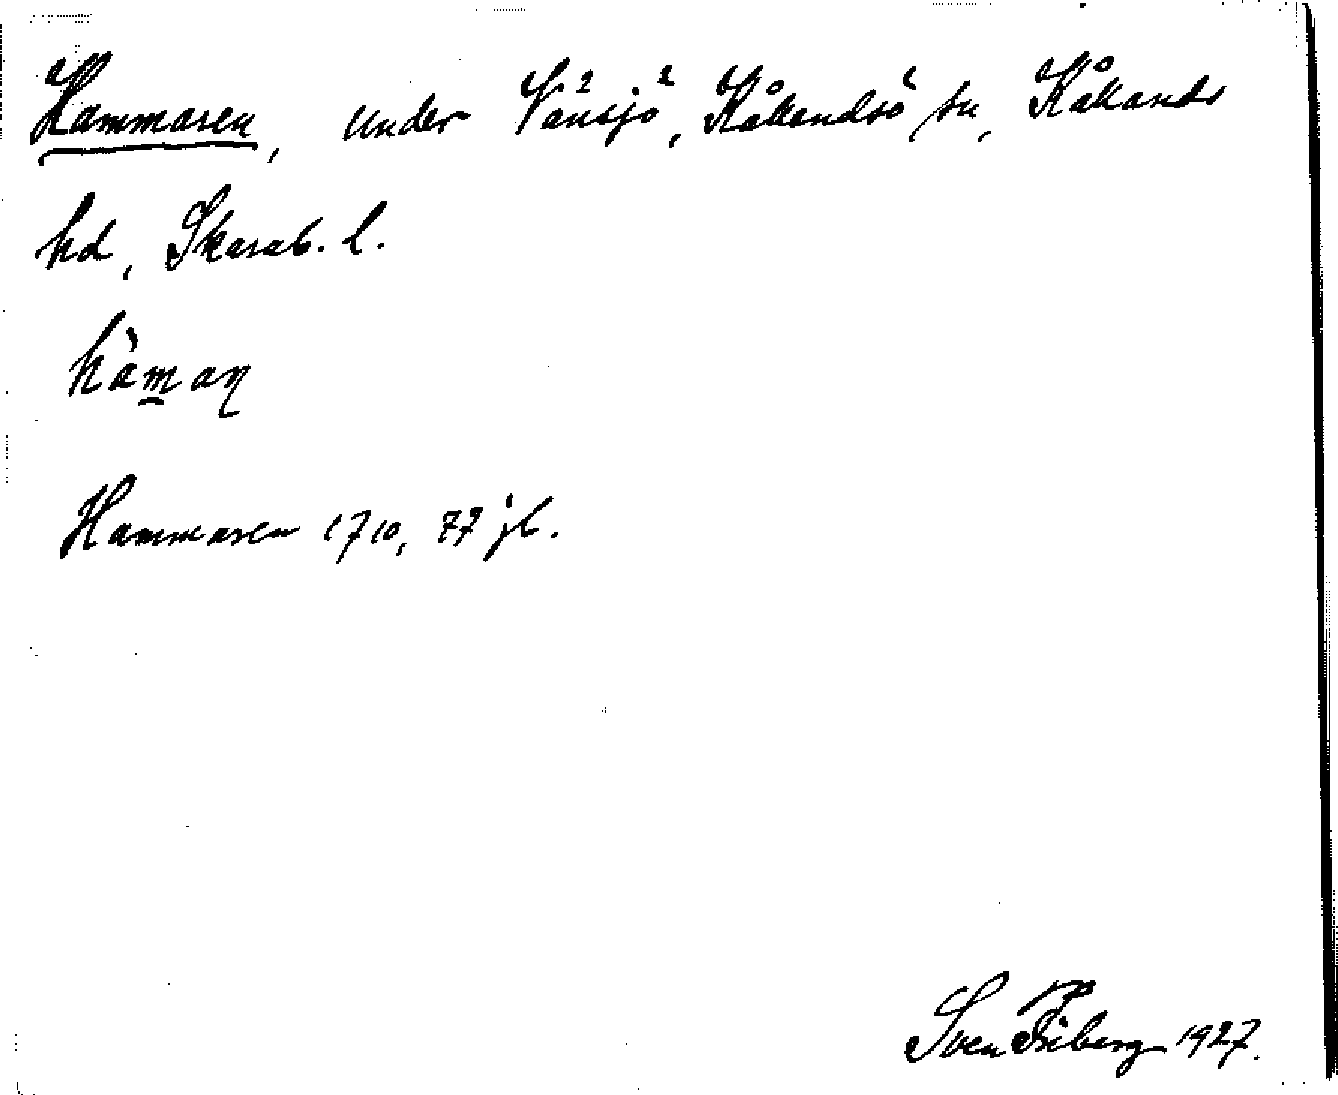 Hammaren, under Vänsjö, Kållandsö sn, Kållands
hd, Skarab. l.
hàm̲aɳ
Hammaren 1710, 77 jb.
Sven Friberg 1927.